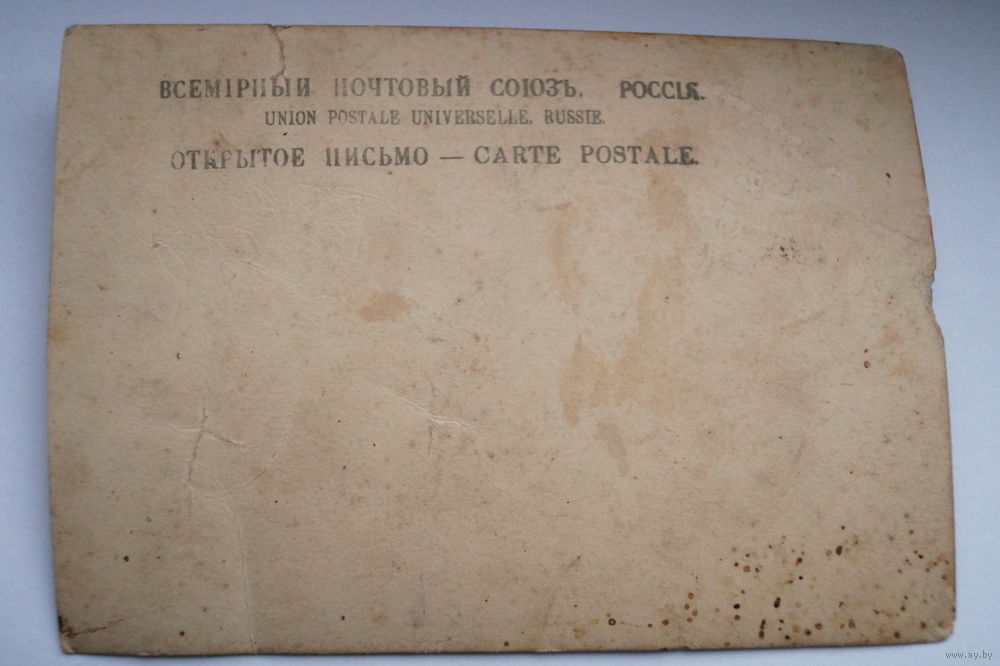 ВСЕМІРНЫЙ ПОЧТОВЫЙ СОЮЗЪ. РОССІЯ.
UNION POSTALE UNIVERSELLE. RUSSIE.
ОТКРЫТОЕ ПИСЬМО — CARTE POSTALE.
www.ay.by